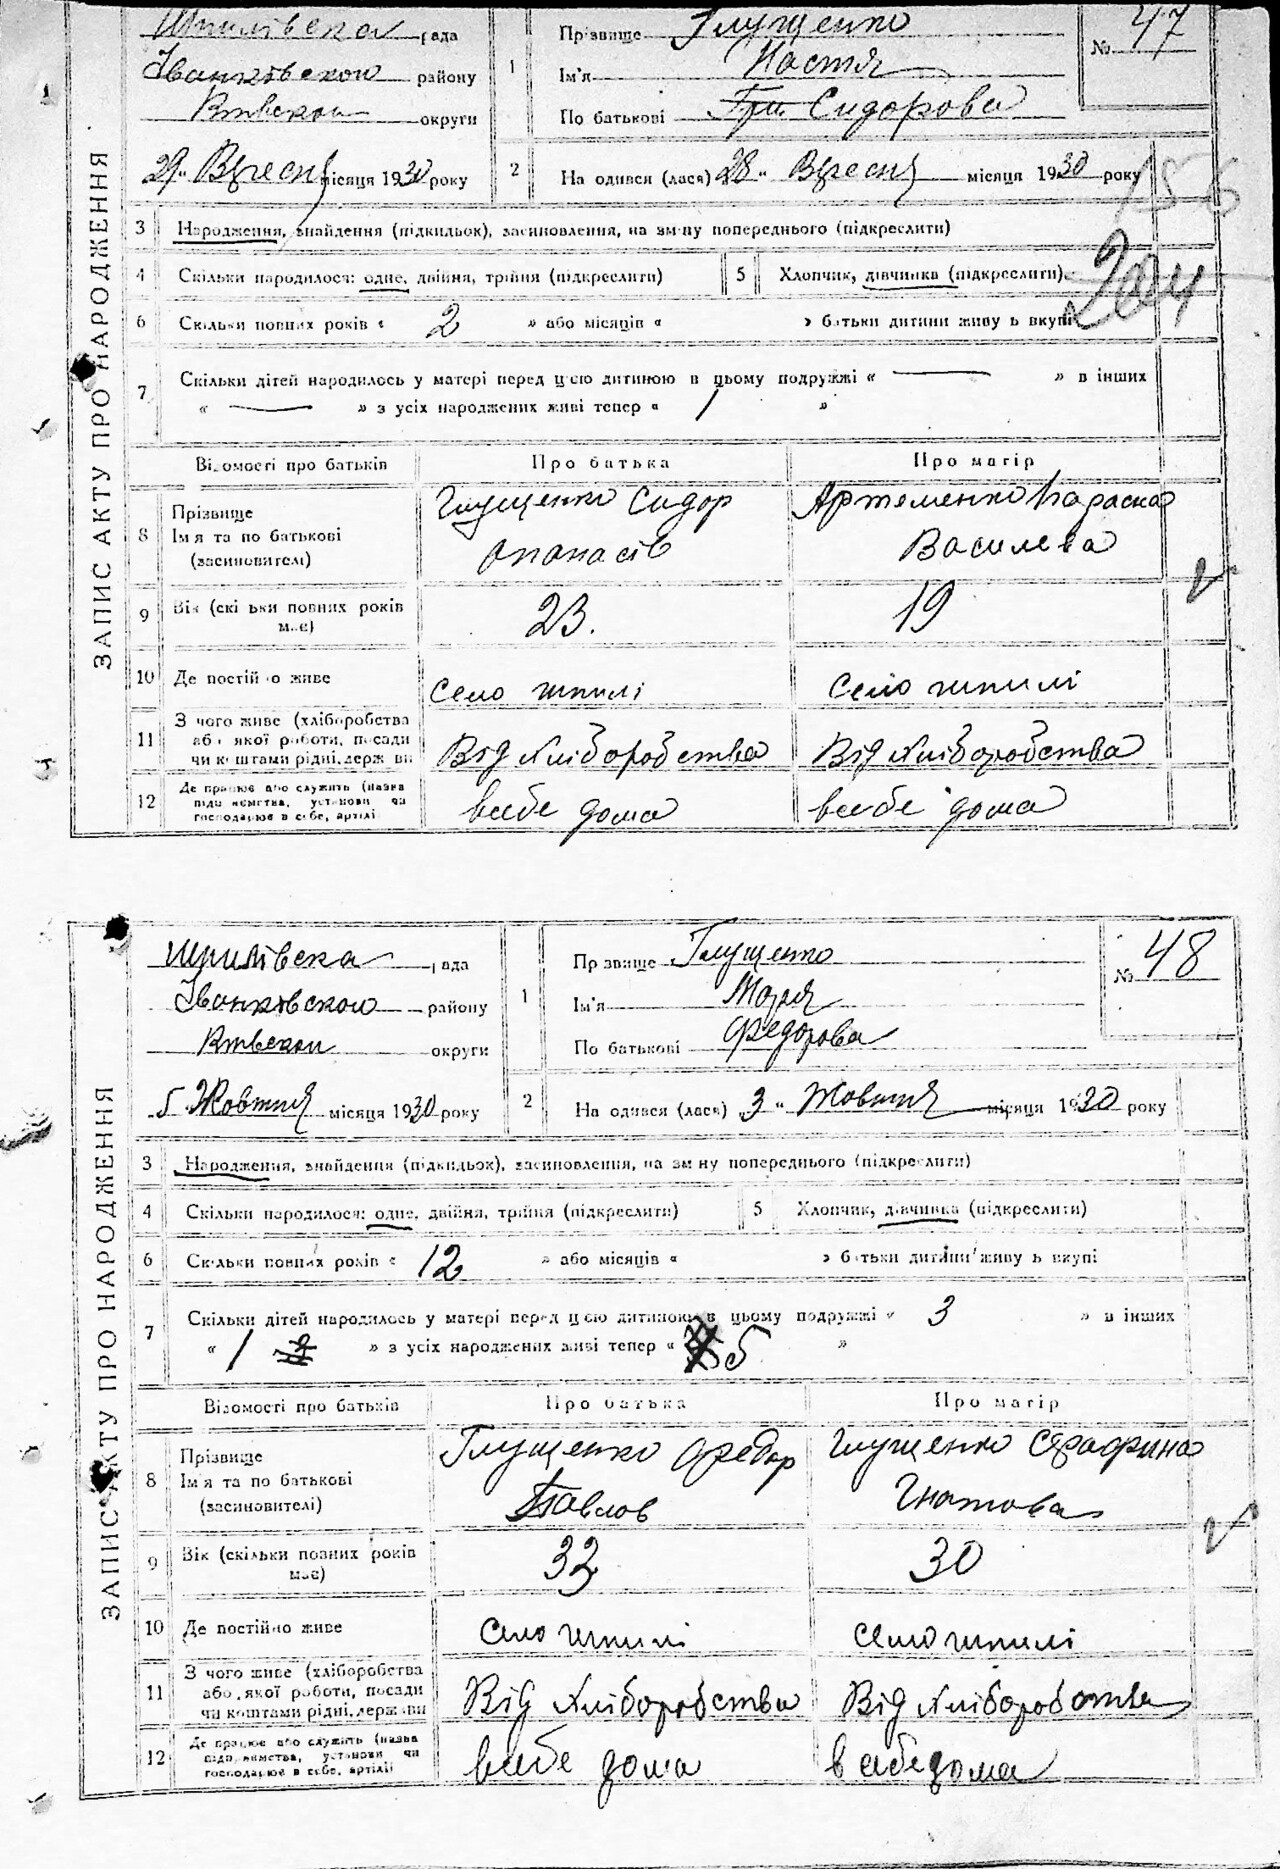 Шпилівска рада
Іванківскои району
Київскои округи
29 " Вересня місяця 1930 року
1
Прізвище Глущенко
Ім'я Настя
По батькові Гри Сидорова
№ 47
2
На одився (лася) 28 " Вересня місяця 1930 року
156
204
ЗАПИС АКТУ ПРО НАРОДЖЕННЯ
3 Народження, знайдення (підкидьок), засиновлення, на зм ну попереднього (підкреслити)
4 Скільки народилося: одне, двійня, трійня (підкреслити) 5 Хлопчик, дівчинка (підкреслити)
6 Скільки повних років « 2 » або місяців « » батьки дитини живу ь вкупі
7 Скільки дітей народилось у матері перед цією дитиною в цьому подружжі « — » в інших
« — » з усіх народжених живі тепер « 1 »
Відомості про батьків Про батька Про матір
8 Прізвище
Ім я та по батькові
(засиновителі)
Глущенко Сидор
Опанасів
Артеменко Параска
Василева
9 Вік (скі ьки повних років
має)
23.
19
10 Де постій о живе
Село шпилі
Село шпилі
11 З чого живе (хліборобства
або якої роботи, посади
чи коштами рідні, держ ви
Від хліборобства
Від хліборобства
12 Де працює або служить (назва
підп иємства, установи чи
господарює в себе, артілі
всебе дома
всебе дома
Шпилівска рада
Іванківскои району
Київскои округи
5 Жовтня місяця 1930 року
1
Пр звище Глущенко
Ім'я Марія
По батькові Федорова
№ 48
2
На одився (лася) 3 " Жовтня місяця 1930 року
ЗАПИС АКТУ ПРО НАРОДЖЕННЯ
3 Народження, знайдення (підкидьок), засиновлення, на зм ну попереднього (підкреслити)
4 Скільки народилося: одне, двійня, трійня (підкреслити) 5 Хлопчик, дівчинка (підкреслити)
6 Скільки повних років « 12 » або місяців « » батьки дитини живу ь вкупі
7 Скільки дітей народилось у матері перед цією дитиною в цьому подружжі « 3 » в інших
« 1 » з усіх народжених живі тепер « 5 »
Відомості про батьків Про батька Про матір
8 Прізвище
Ім'я та по батькові
(засиновителі)
Глущенко Федор
Павлов
Глущенко Сэрафина
Гнатова
9 Вік (скільки повних років
має)
33
30
10 Де постійно живе
Село шпилі
Село шпилі
11 З чого живе (хліборобства
або якої роботи, посади
чи коштами рідні, держ ви
Від хліборобства
Від хліборобства
12 Де працює або служить (назва
підп иємства, установи чи
господарює в себе, артілі
всебе дома
в себе дома